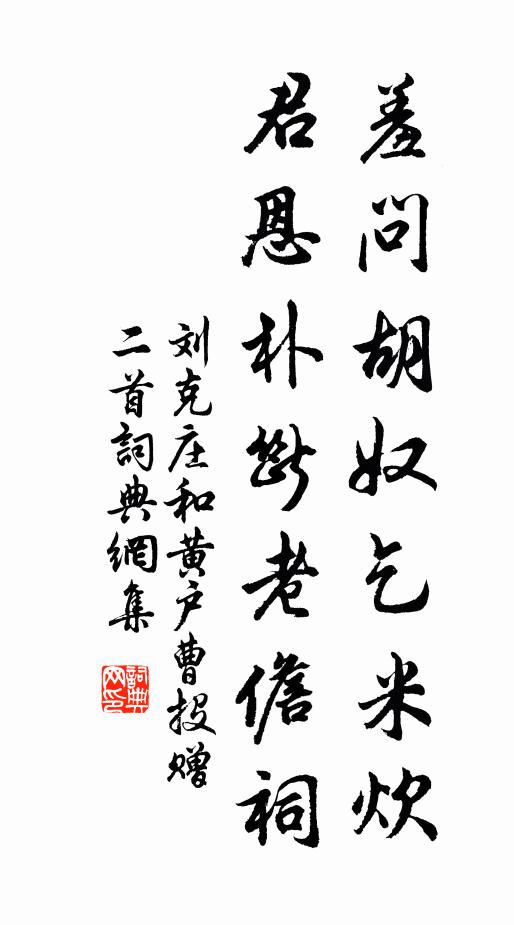 羞问胡奴乞米炊
君恩朴斷老儋祠
刘克庄和黄户曹投赠
二首詞典網集
詞典网印